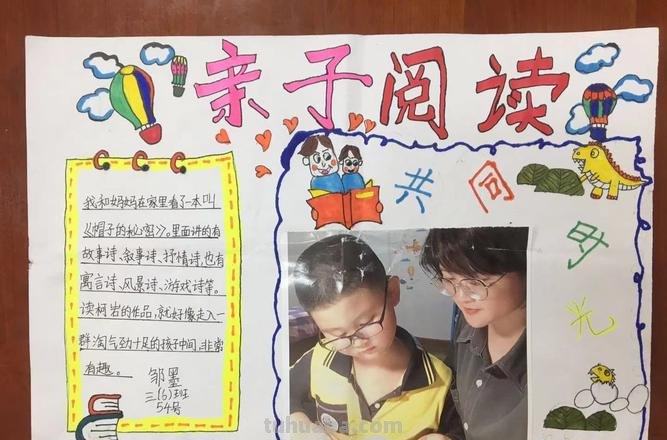 亲子阅读
共同时光
我和妈妈在家里看了一本叫
《帽子的秘密》。里面讲的有
故事诗、叙事诗、抒情诗,也有
寓言诗、风景诗、游戏诗等。
读柯岩的作品,就好像走入一
群淘气劲十足的孩子中间,非常
有趣。
邹墨
三(6)班
54号
tuhuaba.com